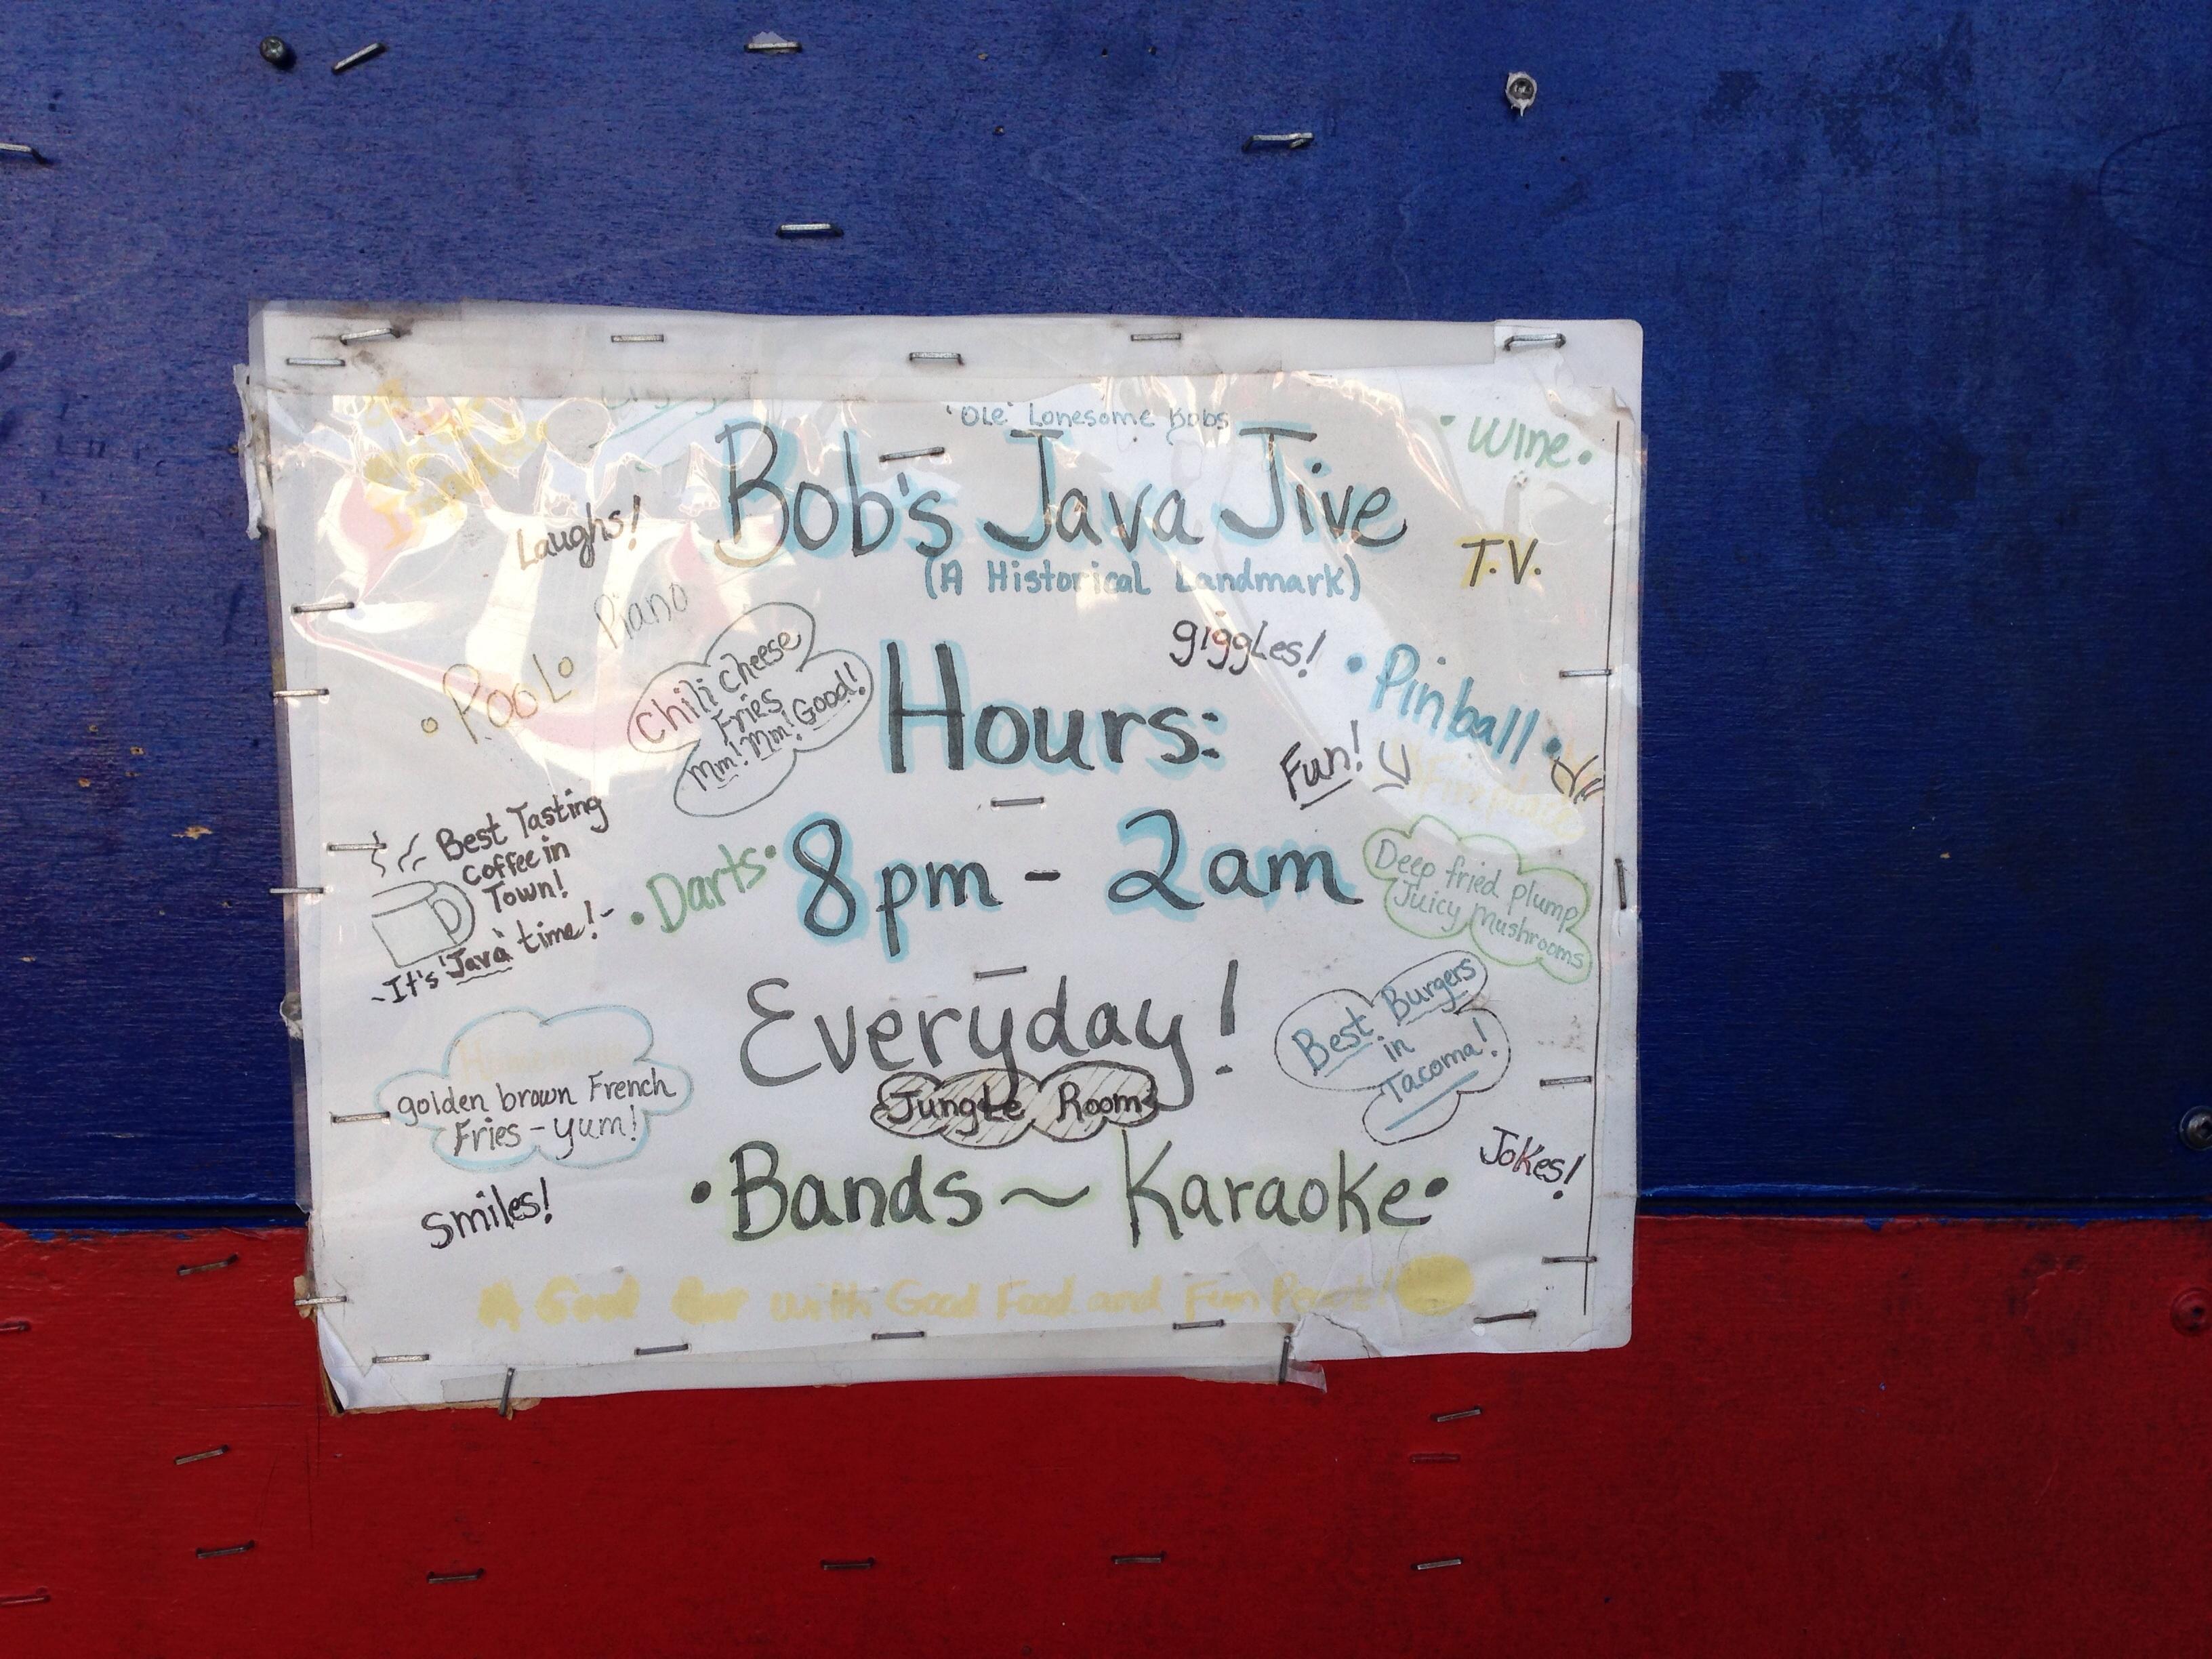 'Ole' Lonesome Bobs
Bob's Java Jive
(A Historical Landmark)
• Wine •
T.V.
Laughs!
Piano
• Pool •
Chili Cheese
Fries
Mm! Mm! Good!
Hours:
giggles!
• Pinball •
Fun!
Fireplace
Best Tasting
Coffee in
Town!
-It's 'Java' time!-
• Darts •
8pm - 2am
Deep fried plump
Juicy Mushrooms
Everyday!
Best Burgers
in
Tacoma!
Homemade
golden brown French
Fries - yum!
Jungle Room
Smiles!
• Bands ~ Karaoke •
Jokes!
A Good with Good Food and Fun